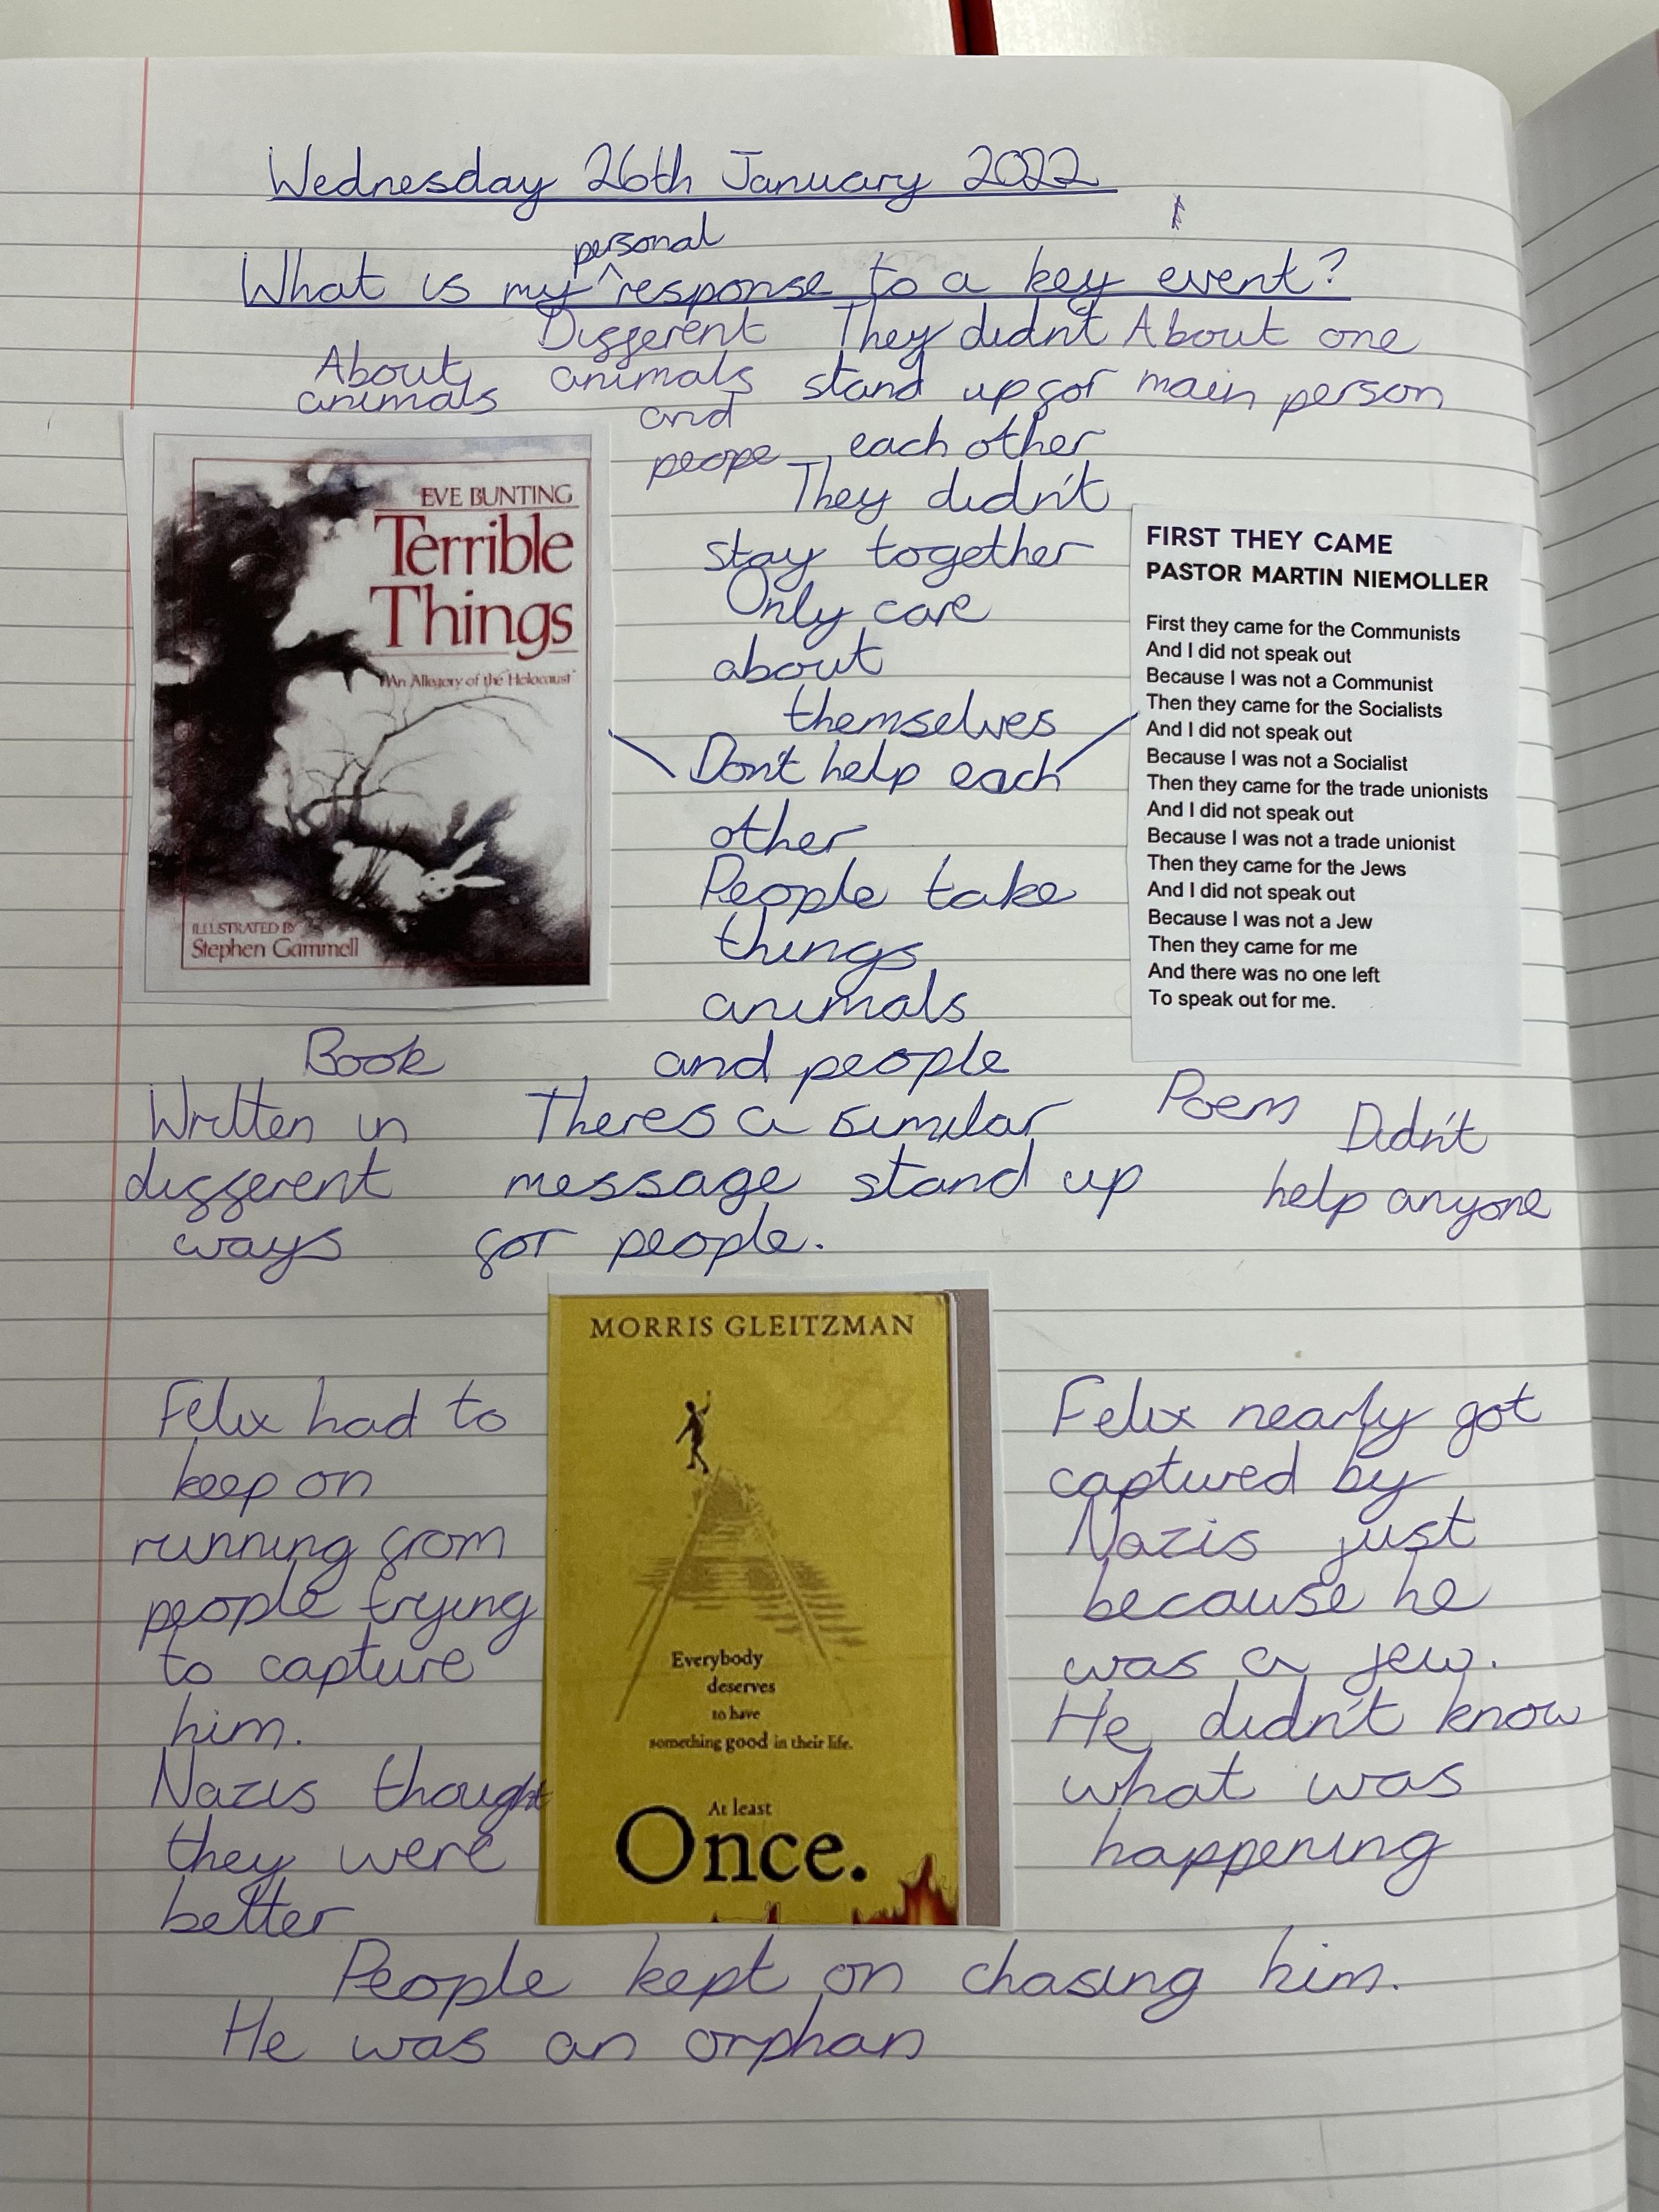 Wednesday 26th January 2022
personal
What is my ^ response to a key event?
About
animals
Different
animals
and
peope
They didn't
stand up for
each other
They didn't
stay together
Only care
about
themselves
Don't help each
other
People take
things
animals
and people
About one
main person
EVE BUNTING
Terrible
Things
"An Allegory of the Holocaust"
ILLUSTRATED BY
Stephen Gammell
FIRST THEY CAME
PASTOR MARTIN NIEMOLLER
First they came for the Communists
And I did not speak out
Because I was not a Communist
Then they came for the Socialists
And I did not speak out
Because I was not a Socialist
Then they came for the trade unionists
And I did not speak out
Because I was not a trade unionist
Then they came for the Jews
And I did not speak out
Because I was not a Jew
Then they came for me
And there was no one left
To speak out for me.
Book
Written in
different
ways
Theres a similar
message stand up
for people.
Poem
Didn't
help anyone
Felix had to
keep on
running from
people trying
to capture
him.
Nazis thought
they were
better
MORRIS GLEITZMAN
Everybody
deserves
to have
something good in their life.
At least
Once.
Felix nearly got
captured by
Nazis just
because he
was a jew.
He didn't know
what was
happening
People kept on chasing him.
He was an orphan